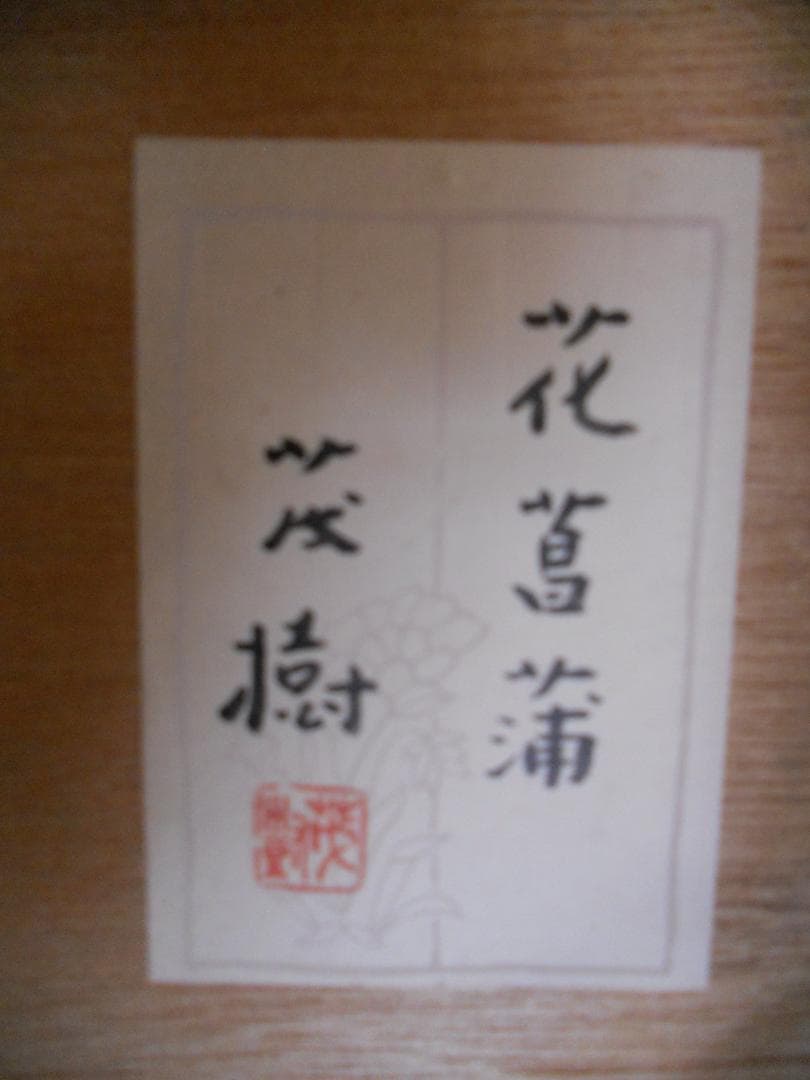 花菖蒲
茂樹